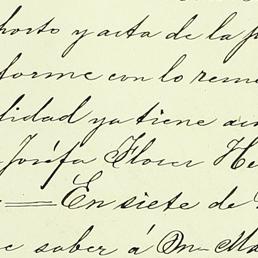 porto y acta de la p
forme con lo reme
lidad ya tiene
Joséfa Flores He
En siete de
saber á Dn Ma